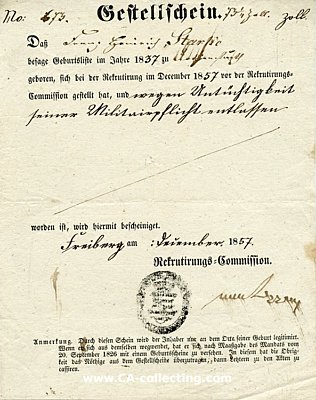 No: 673. Gestellschein. 73½ Zoll. Zoll.
Daß Franz Heinrich
besage Geburtsliste im Jahre 1837 zu
geboren, sich bei der Rekrutirung im December 1857 vor der Rekrutirungs-
Commission gestellt hat, und wegen Untüchtigkeit
seiner Militairpflicht entlassen
worden ist, wird hiermit bescheiniget.
Freiberg am : December. 1857.
Rekrutirungs-Commission.
Anmerkung. Durch diesen Schein wird der Inhaber nur an dem Orte seiner Geburt legitimirt.
Wenn er sich aus demselben wegwendet, hat er sich, nach Maasgabe des Mandats vom
20. September 1826 mit einem Geburtsscheine zu versehen. In diesen hat die Obrig-
keit das Nöthige aus dem Gestellscheine überzutragen, dann Letztern zu den Akten zu
cassiren.
www.CA-collecting.com